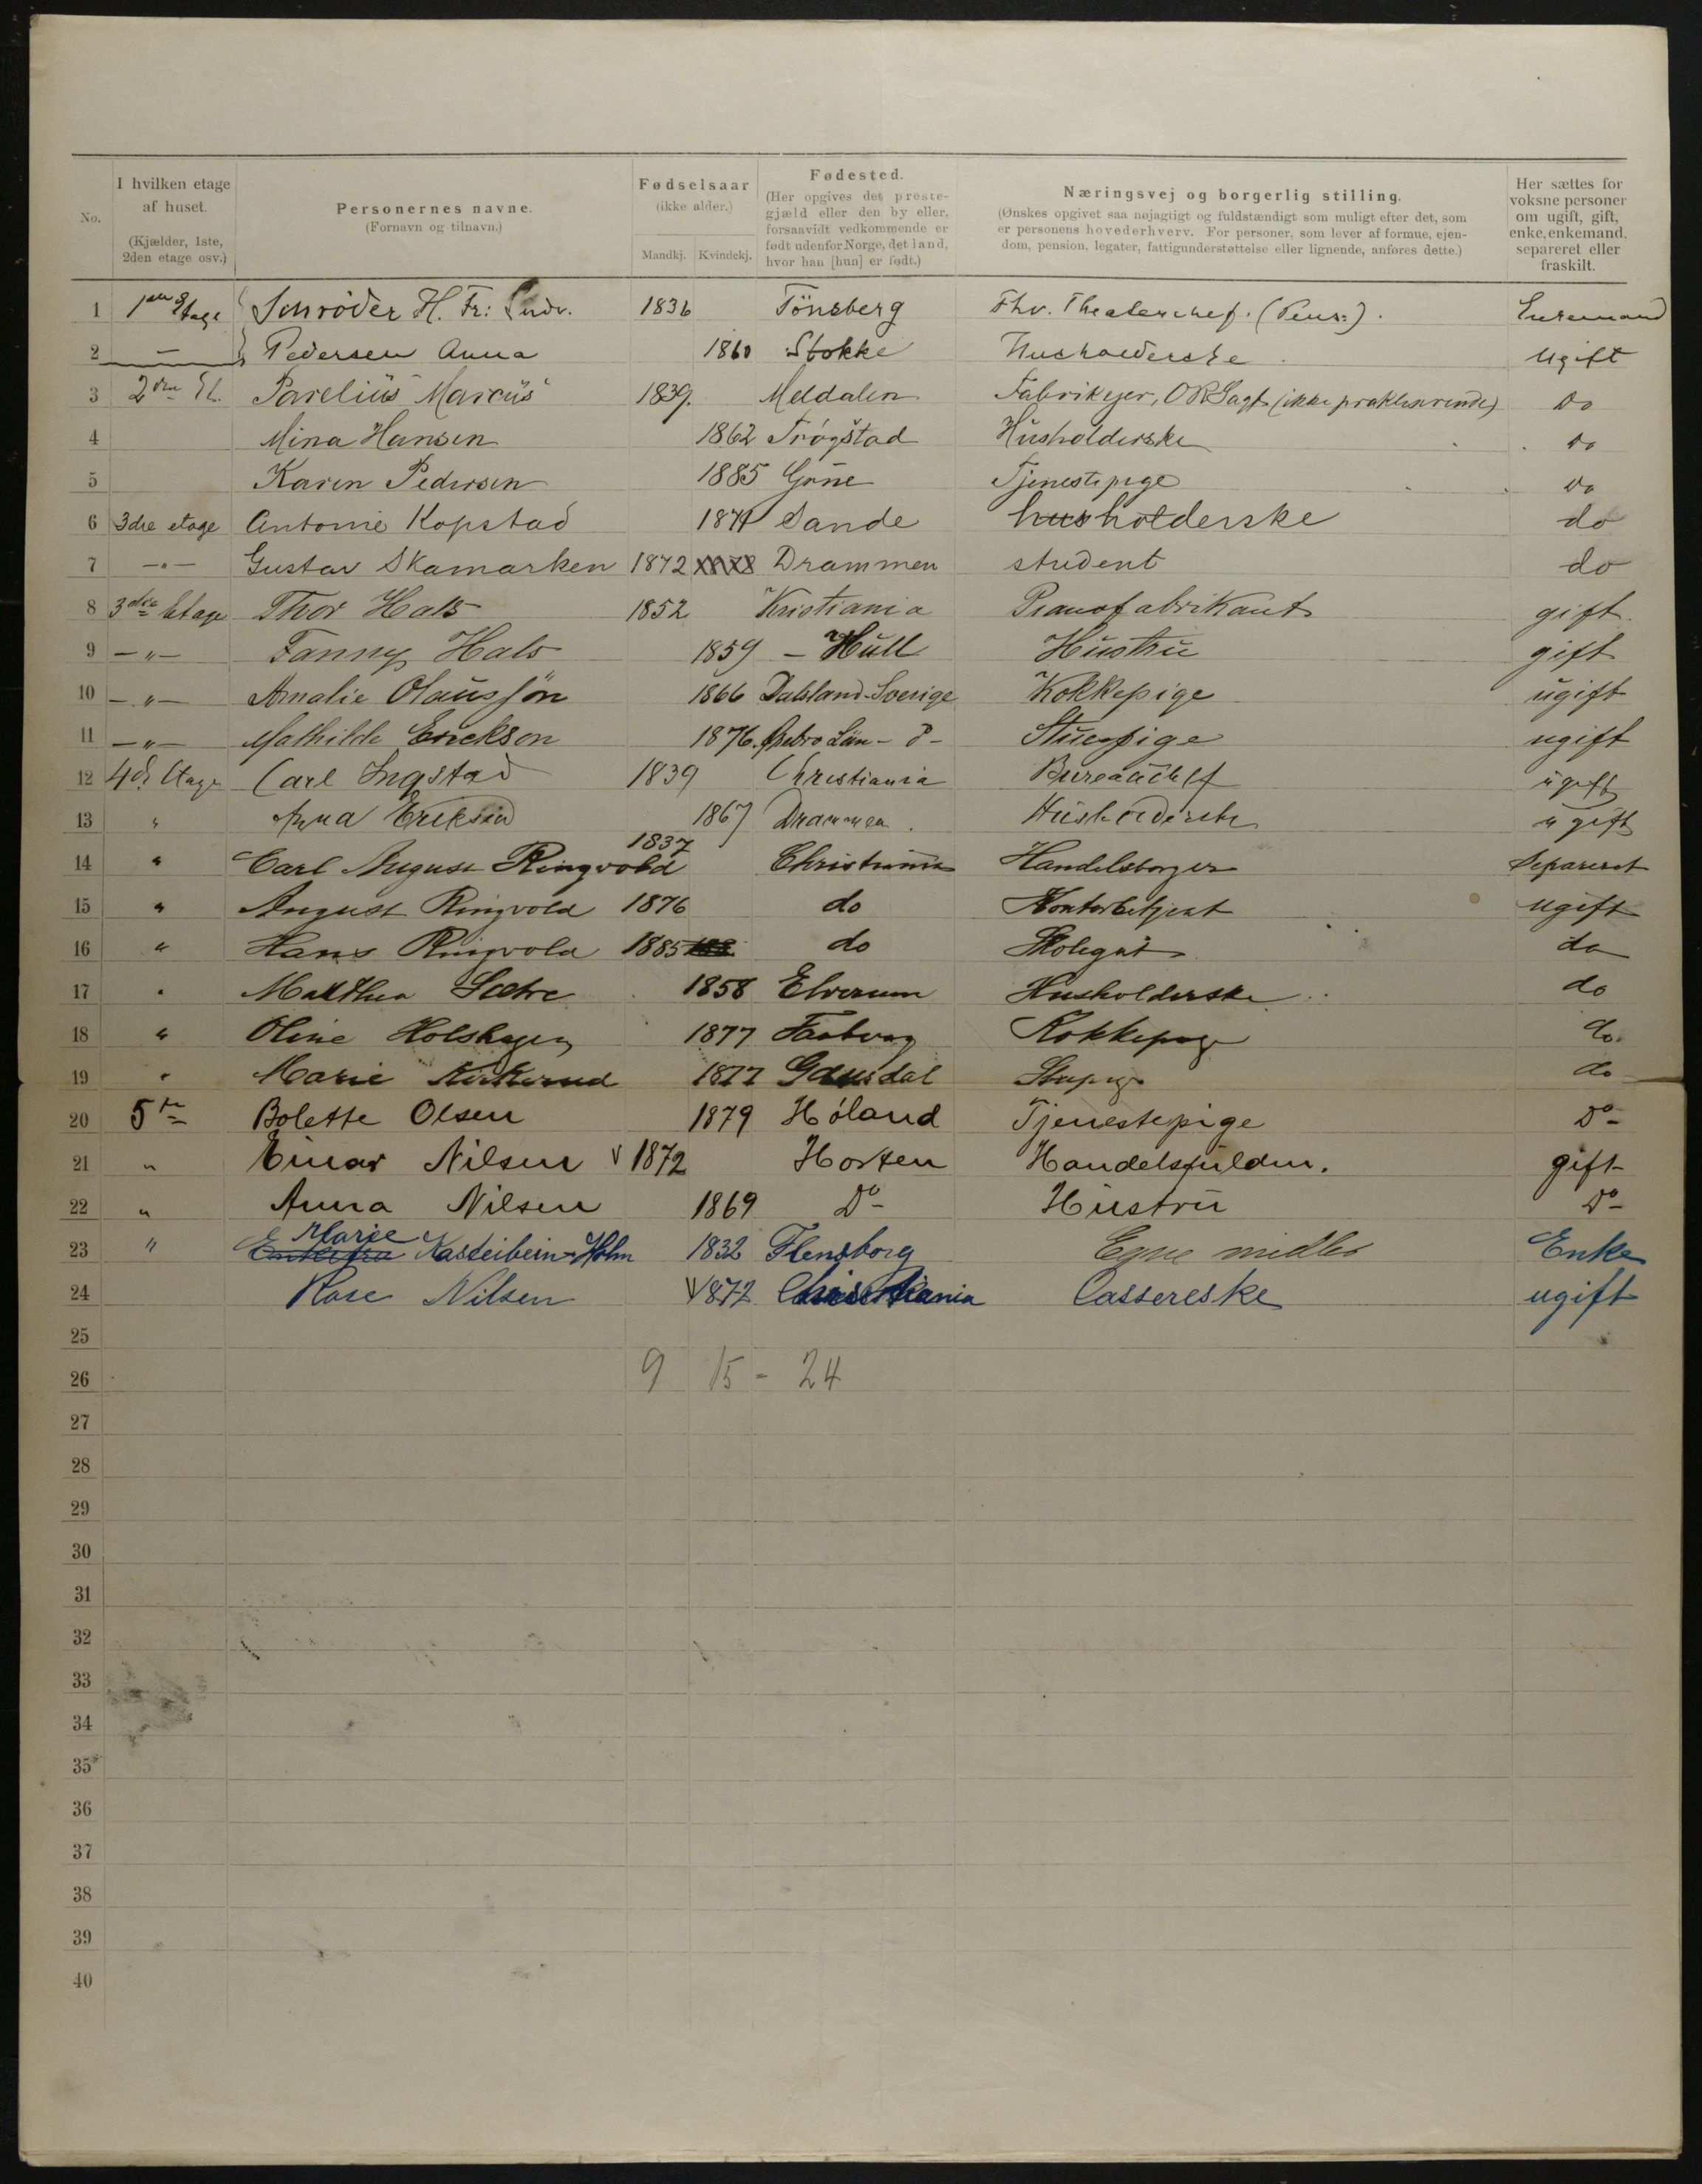 No.
I hvilken etage af huset. (Kjælder, 1ste, 2den etage osv.)
Personernes navne. (Fornavn og tilnavn.)
Fødselsaar (ikke alder.) Mandkj. Kvindekj.
Fødested. (Her opgives det prestegjæld eller den by eller, forsaavidt vedkommende er født udenfor Norge, det land, hvor han [hun] er født.)
Næringsvej og borgerlig stilling. (Ønskes opgivet saa nøjagtigt og fuldstændigt som muligt efter det, som er personens hovederhverv. For personer, som lever af formue, ejendom, pension, legater, fattigunderstøttelse eller lignende, anføres dette.)
Her sættes for voksne personer om ugift, gift, enke, enkemand, separeret eller fraskilt.
1 1ste Etage Schrøder H. Fr: Ludv. 1836 Tönsberg Fhv. Theaterchef. (Pens:). Enkemand
2 — Pedersen Anna 1860 Stokke Husholderske Ugift
3 2den Et. Parelius Marcus 1839. Meldalen Fabrikejer, ORSagf (ikke praktiserende) do
4 Mina Hansen 1862 Trøgstad Husholderske do
5 Karen Pedersen 1885 Tjenestepige do
6 3die etage Antonie Kopstad Sande husholderske do
7 -"- Gustav Skamarken 1872 Drammen student do
8 3die Etage Thor Hals 1852 Kristiania Pianofabrikant gift.
9 -"- Fanny Hals 1859 - Hull Hustru gift
10 -"- Amalie Olausson 1866 Dalsland-Sverige Kokkepige ugift
11 -"- Mathilde Erickson 1876. Ørebro Län - d- Stuepige ugift
12 4de Etage Carl Ingstad 1839 Christiania Bureauchef ugift
13 " Anna Eriksen 1867 Drammen. Husholderske ugift
14 " Carl August Ringvold 1837 Christiania Handelsborger Separeret
15 " August Ringvold 1876 do Kontorbetjent ugift
16 " Hans Ringvold 1885 do Skolegut do
17 " Matthea Sætre 1858 Elverum Husholderske do
18 " Oline Holshagen 1877 Faaberg Kokkepige do.
19 " Marie Kirkerud 1877 Gausdal Stupige do
20 5te Bolette Olsen 1879 Høland Tjenestepige Do
21 " Einar Nilsen 1872 Horten Handelsfuldm. gift
22 " Anna Nilsen 1869 Do Hustru Do
23 " E Marie Kasteibein-Holm 1832 Flensborg Egne midler Enke
24 Rose Nilsen 1872 Christiania Cassereske ugift
25
26 9 15 - 24
27
28
29
30
31
32
33
34
35
36
37
38
39
40